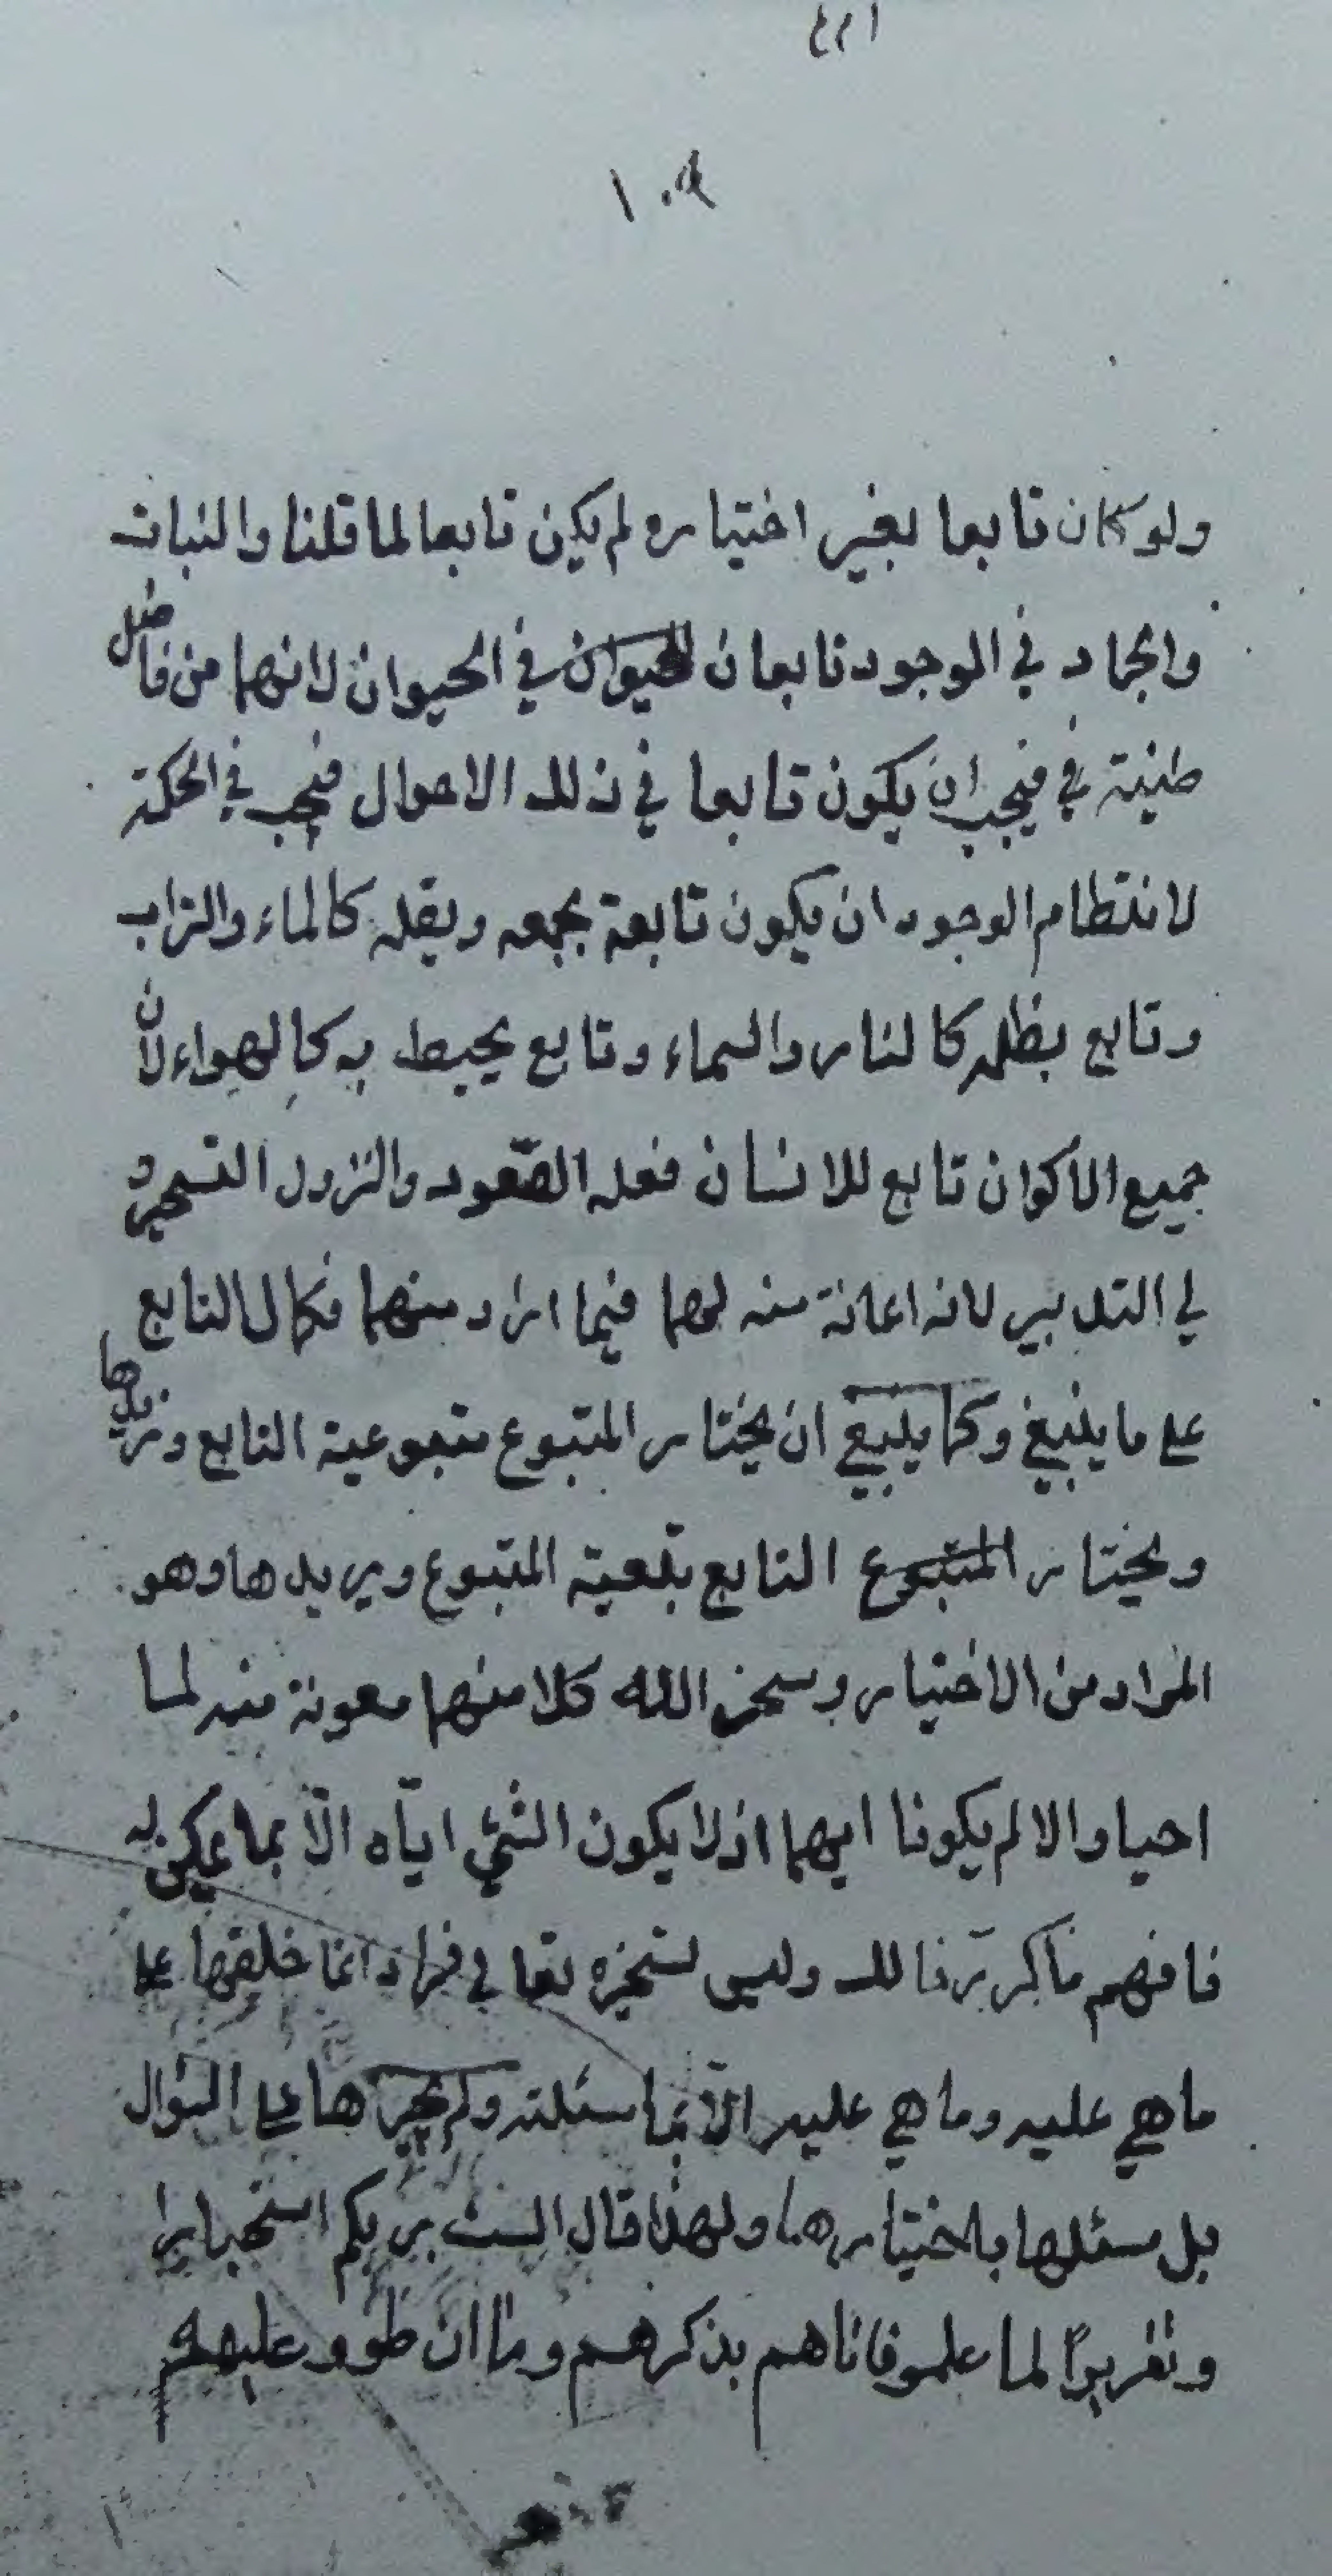 ١٠٩
ولو كان تابعا بغير اختياره لم يكن تابعا لما قلنا والنبات
والجماد في الوجود تابعان للحيوان في الحيوان لانهما من فاضل
طينته في فيجب ان يكون تابعا في ذلك الاحوال فيجب في الحكمة
لانتظام الوجود ان يكون تابعة بجمعه ويقله كالماء والتراب
وتابع يظله كالنار والسماء وتابع يحيط به كالهواء لان
جميع الاكوان تابع للانسان فعله الصعود والنزول التسخير و
لي التدبير لانه اعانة منه لهما فيما اراد منهما فكمال التابع
على ما ينبغي وكما ينبغي ان يختار المتبوع متبوعية التابع ويريدها
ويختار المتبوع التابع بتبعية المتبوع ويريدها وهو
المراد من الاختيار وسخر الله كلا منهما معونة منه لما
احبا والا لم يكونا ايهما اذ لا يكون الشئ اياه الّا بما يمكن له
فافهم ما كررّنا لك وليس تسخيره تعا في افراد انما خلقها على
ما هي عليه وما هي عليه الّا بما سئلته ولم يجبرها على السؤال
بل سئلها باختيارها ولهذا قال الست بربكم استخبارا
وتقريرًا لما علمو فاتاهم بذكرهم وما ان طوو عليهم